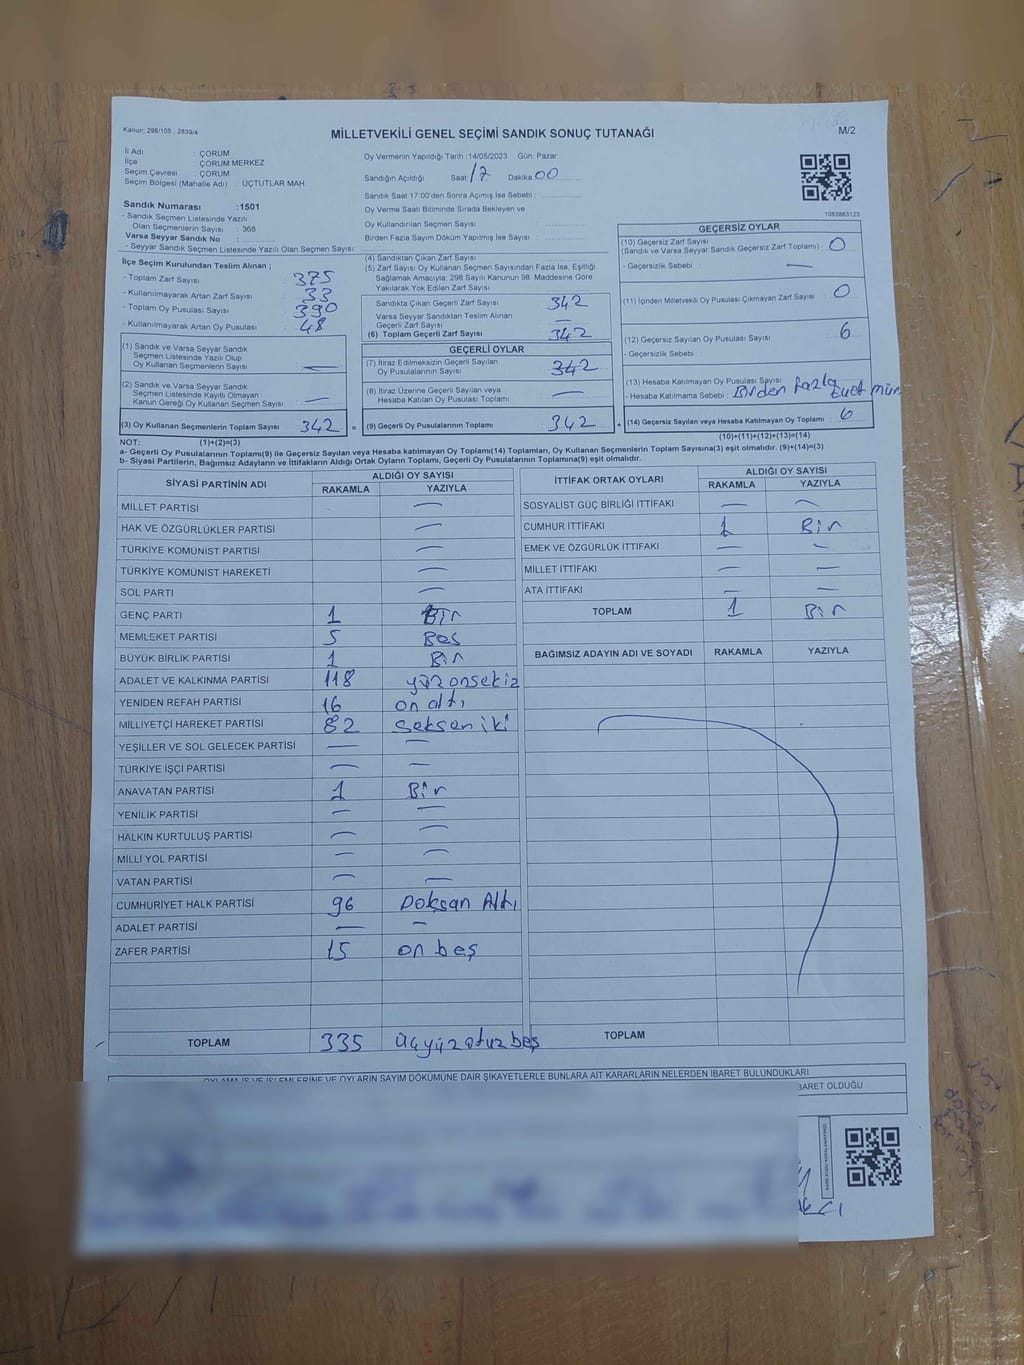 Kanun: 298/105 , 2839/4
MİLLETVEKİLİ GENEL SEÇİMİ SANDIK SONUÇ TUTANAĞI
M/2
İl Adı : ÇORUM
İlçe : ÇORUM MERKEZ
Seçim Çevresi : ÇORUM
Seçim Bölgesi (Mahalle Adı) : ÜÇTUTLAR MAH.
Oy Vermenin Yapıldığı Tarih :14/05/2023 Gün: Pazar
Sandığın Açıldığı Saat 17 Dakika 00
Sandık Saat 17.00'den Sonra Açımış İse Sebebi :
Oy Verme Saati Bitiminde Sırada Bekleyen ve
Oy Kullandırılan Seçmen Sayısı :
Birden Fazla Sayım Döküm Yapılmış İse Sayısı :
1083883123
Sandık Numarası :1501
- Sandık Seçmen Listesinde Yazılı
Olan Seçmenlerin Sayısı : 368
Varsa Seyyar Sandık No :
- Seyyar Sandık Seçmen Listesinde Yazılı Olan Seçmen Sayısı:
İlçe Seçim Kurulundan Teslim Alınan ;
- Toplam Zarf Sayısı : 375
- Kullanılmayarak Artan Zarf Sayısı : 33
- Toplam Oy Pusulası Sayısı : 390
- Kullanılmayarak Artan Oy Pusulası : 48
(1) Sandık ve Varsa Seyyar Sandık
Seçmen Listesinde Yazılı Olup
Oy Kullanan Seçmenlerin Sayısı : —
(2) Sandık ve Varsa Seyyar Sandık
Seçmen Listesinde Kayıtlı Olmayan
Kanun Gereği Oy Kullanan Seçmen Sayısı : —
(3) Oy Kullanan Seçmenlerin Toplam Sayısı : 342 =
(4) Sandıktan Çıkan Zarf Sayısı :
(5) Zarf Sayısı Oy Kullanan Seçmen Sayısından Fazla İse, Eşitliği
Sağlamak Amacıyla; 298 Sayılı Kanunun 98. Maddesine Göre
Yakılarak Yok Edilen Zarf Sayısı :
Sandıkta Çıkan Geçerli Zarf Sayısı : 342
Varsa Seyyar Sandıktan Teslim Alınan
Geçerli Zarf Sayısı : —
(6) Toplam Geçerli Zarf Sayısı : 342
GEÇERLİ OYLAR
(7) İtiraz Edilmeksizin Geçerli Sayılan
Oy Pusulalarının Sayısı : 342
(8) İtiraz Üzerine Geçerli Sayılan veya
Hesaba Katılan Oy Pusulası Toplamı : —
(9) Geçerli Oy Pusulalarının Toplamı : 342 +
GEÇERSİZ OYLAR
(10) Geçersiz Zarf Sayısı
(Sandık ve Varsa Seyyar Sandık Geçersiz Zarf Toplamı) : 0
- Geçersizlik Sebebi : —
(11) İçinden Milletvekili Oy Pusulası Çıkmayan Zarf Sayısı : 0
(12) Geçersiz Sayılan Oy Pusulası Sayısı : 6
- Geçersizlik Sebebi :
(13) Hesaba Katılmayan Oy Pusulası Sayısı :
- Hesaba Katılmama Sebebi : Birden fazla Evet mür
(14) Geçersiz Sayılan veya Hesaba Katılmayan Oy Toplamı : 6
NOT: (1)+(2)=(3)
(10)+(11)+(12)+(13)=(14)
a- Geçerli Oy Pusulalarının Toplamı(9) ile Geçersiz Sayılan veya Hesaba katılmayan Oy Toplamı(14) Toplamları, Oy Kullanan Seçmenlerin Toplam Sayısına(3) eşit olmalıdır. (9)+(14)=(3)
b- Siyasi Partilerin, Bağımsız Adayların ve İttifakların Aldığı Ortak Oyların Toplamı, Geçerli Oy Pusulalarının Toplamına(9) eşit olmalıdır.
SİYASİ PARTİNİN ADI ALDIĞI OY SAYISI
RAKAMLA YAZIYLA
MİLLET PARTİSİ —
HAK VE ÖZGÜRLÜKLER PARTİSİ —
TÜRKİYE KOMÜNİST PARTİSİ —
TÜRKİYE KOMÜNİST HAREKETİ —
SOL PARTİ —
GENÇ PARTİ 1 Bir
MEMLEKET PARTİSİ 5 Beş
BÜYÜK BİRLİK PARTİSİ 1 Bir
ADALET VE KALKINMA PARTİSİ 118 yüzonsekiz
YENİDEN REFAH PARTİSİ 16 on altı
MİLLİYETÇİ HAREKET PARTİSİ 82 Seksen iki
YEŞİLLER VE SOL GELECEK PARTİSİ — —
TÜRKİYE İŞÇİ PARTİSİ — —
ANAVATAN PARTİSİ 1 Bir
YENİLİK PARTİSİ — —
HALKIN KURTULUŞ PARTİSİ — —
MİLLİ YOL PARTİSİ — —
VATAN PARTİSİ — —
CUMHURİYET HALK PARTİSİ 96 Doksan Altı
ADALET PARTİSİ — —
ZAFER PARTİSİ 15 on beş
TOPLAM 335 üçyüzotuzbeş
İTTİFAK ORTAK OYLARI ALDIĞI OY SAYISI
RAKAMLA YAZIYLA
SOSYALİST GÜÇ BİRLİĞİ İTTİFAKI — —
CUMHUR İTTİFAKI 1 Bir
EMEK VE ÖZGÜRLÜK İTTİFAKI — —
MİLLET İTTİFAKI — —
ATA İTTİFAKI — —
TOPLAM 1 Bir
BAĞIMSIZ ADAYIN ADI VE SOYADI RAKAMLA YAZIYLA
TOPLAM
OYLAMA İŞ VE İŞLEMLERİNE VE OYLARIN SAYIM DÖKÜMÜNE DAİR ŞİKAYETLERLE BUNLARA AİT KARARLARIN NELERDEN İBARET BULUNDUKLARI
BARET OLDUĞU